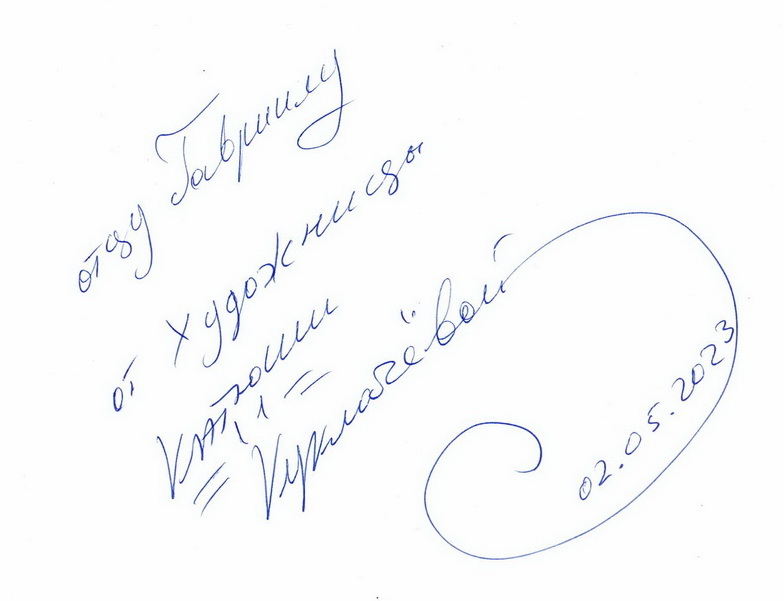 отцу Гавриилу
от художницы
Катюши
Куклачёвой
02.05.2023